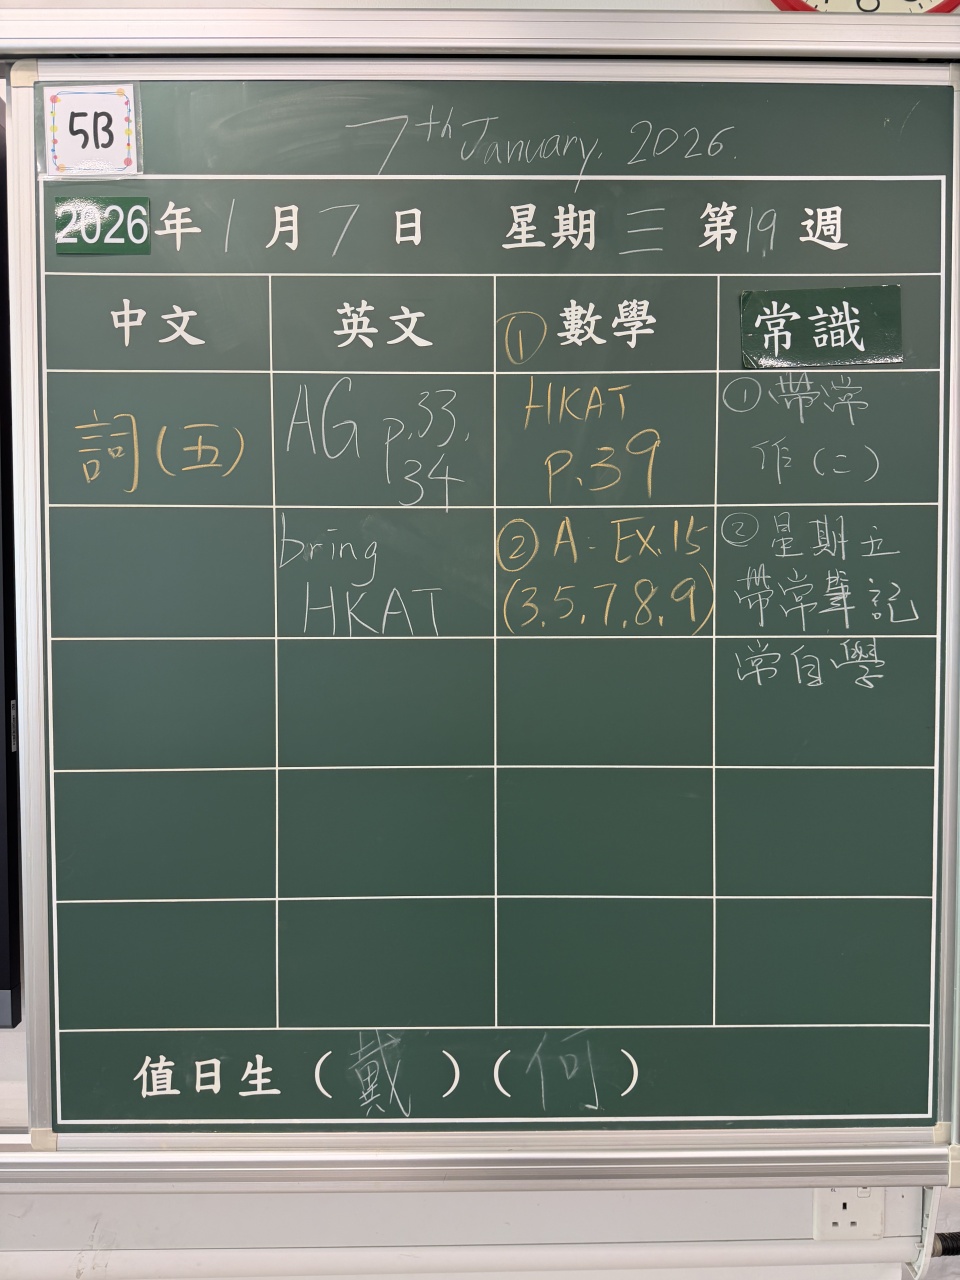 5B
7th January, 2026.
2026年1月7日 星期三 第19週
中文 英文 ①數學 常識
詞(五)
AG p.33,
34
HKAT
p.39
①帶常
作(二)
bring
HKAT
②A: Ex.15
(3.5.7.8.9)
②星期五
帶常筆記
常自學
值日生(戴)(何)